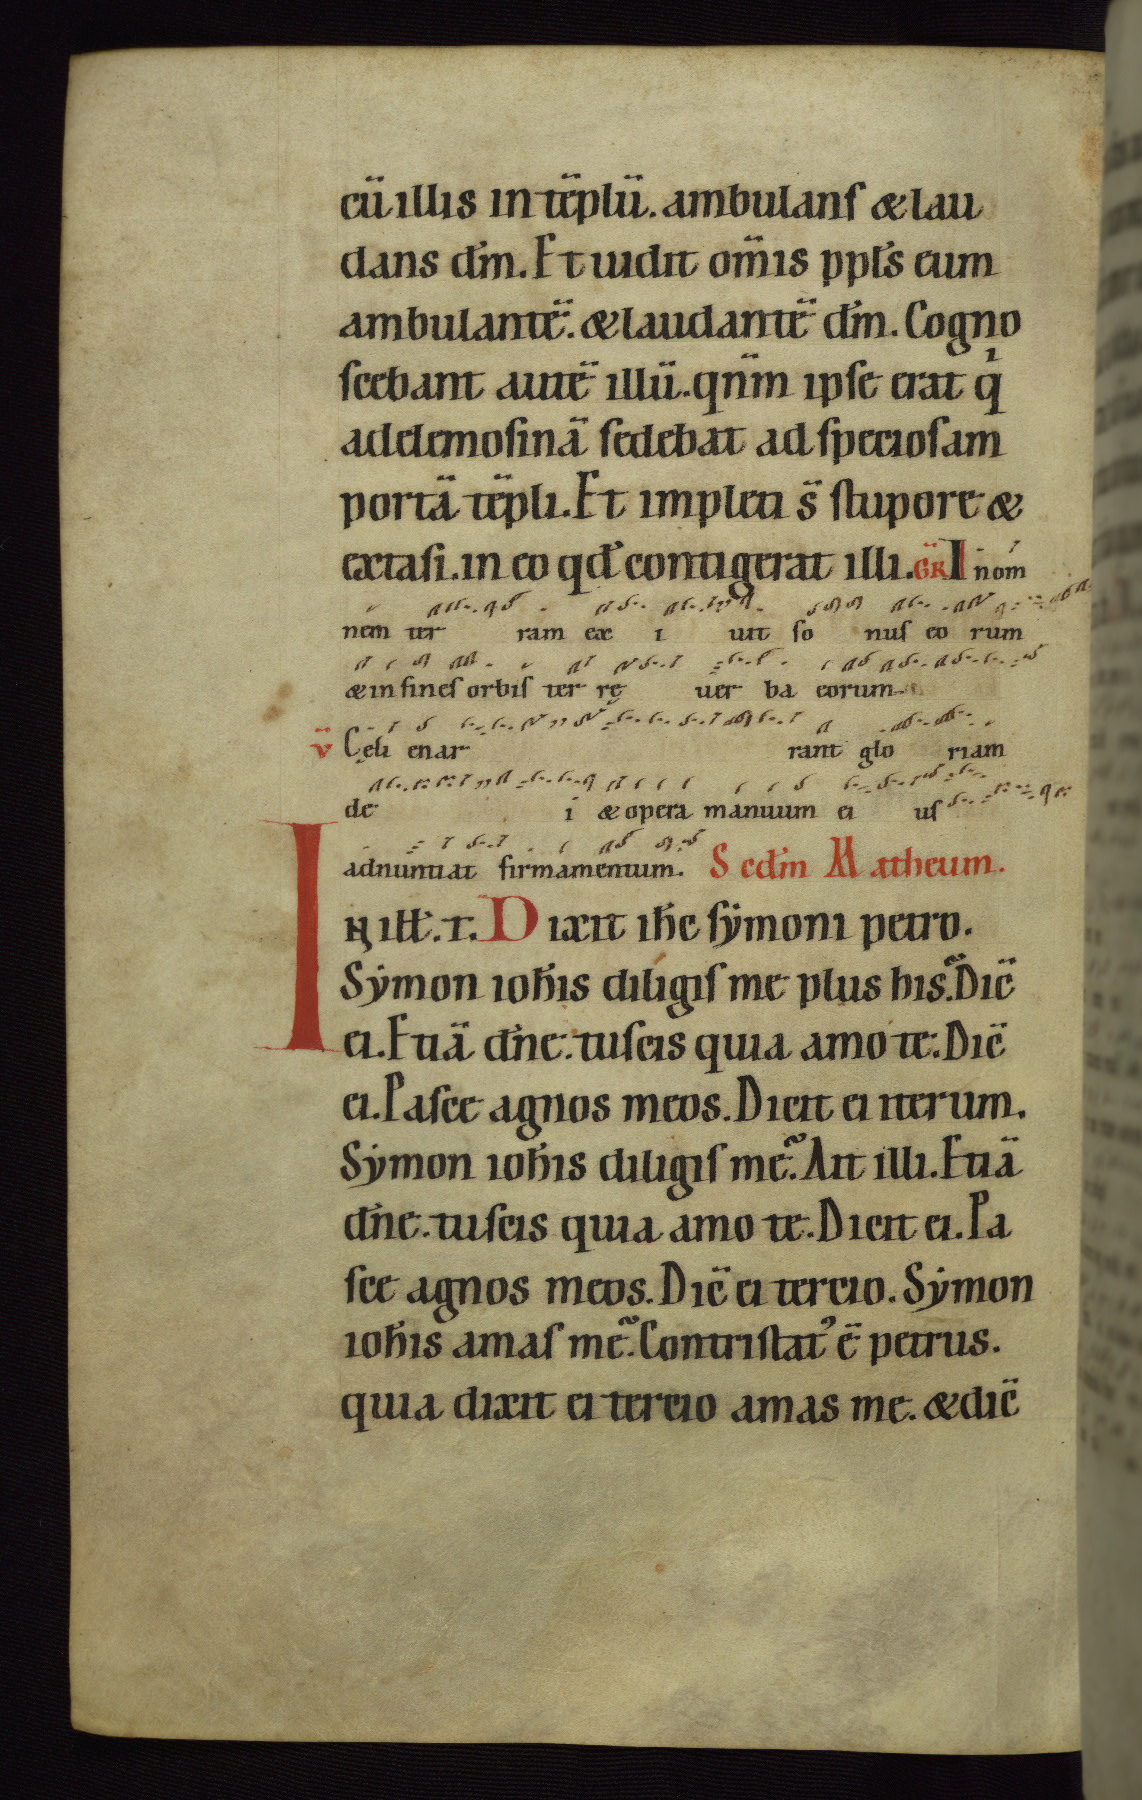 cū illis in tēplū. ambulanſ & lau
dans dm̄. Et uidit om̄is ppl̄s eum
ambulantē. & laudantē dm̄. Cogno
ſcebant autē illū. qnm̄ ipſe erat qi
ad elemoſinā ſedebat ad ſpecioſam
portā tēpli. Et impleti s̄ ſtupore &
extaſi. in eo qd̄ contigerat illi. GR̄ In om
nem ter ram ex i uit ſo nuſ eo rum
& in fineſ orbiſ ter rę uer ba eorum.
v̄ Cęli enar rant glo riam
de i & opera manuum ei uſ
adnuntiat firmamentum. Secdm̄ Matheum.
IN ill̄. T. Dixit ih̄c ſẏmoni petro.
Sẏmon ioh̄is diligiſ me plus his. Dic̄
ei. Etiā dn̄e. tu ſcis quia amo te. Dic̄
ei. Paſce agnos meos. Dicit ei iterum.
Sẏmon ioh̄is diligiſ me. Ait illi. Etiā
dn̄e. tu ſcis quia amo te. Dicit ei. Pa
ſce agnos meos. Dic̄ ei tercio. Sẏmon
ioh̄is amaſ me. Contriſtat' ē petrus.
quia dixit ei tercio amas me. & dic̄